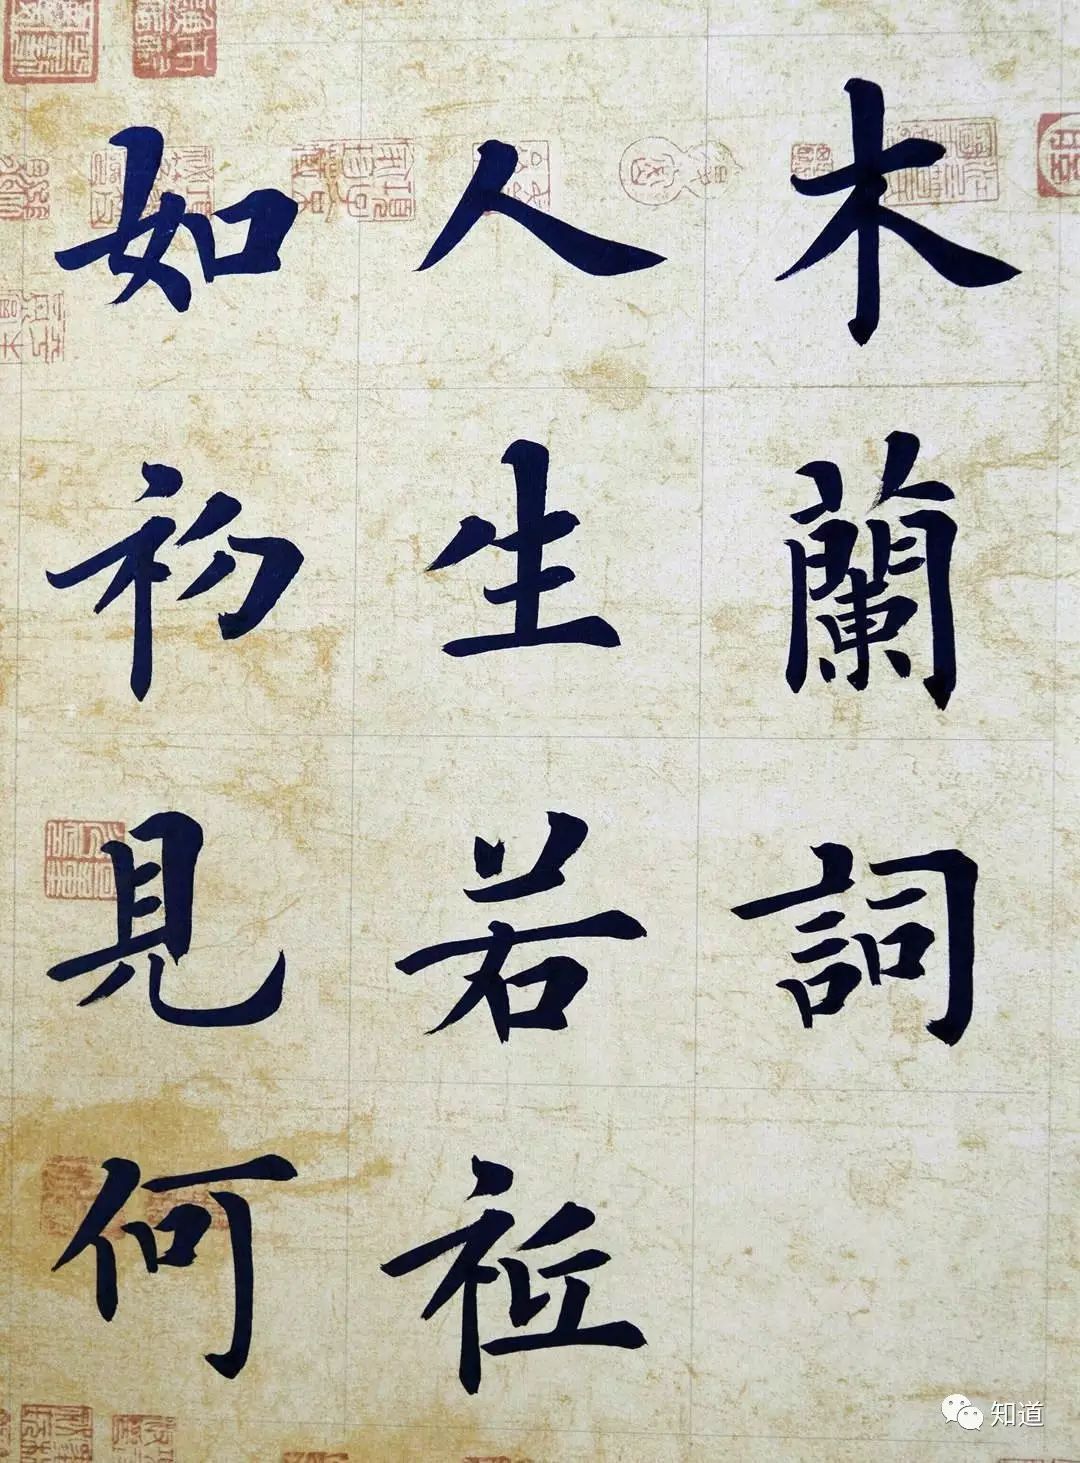 木蘭詞
人生若祗
如初見何
知道